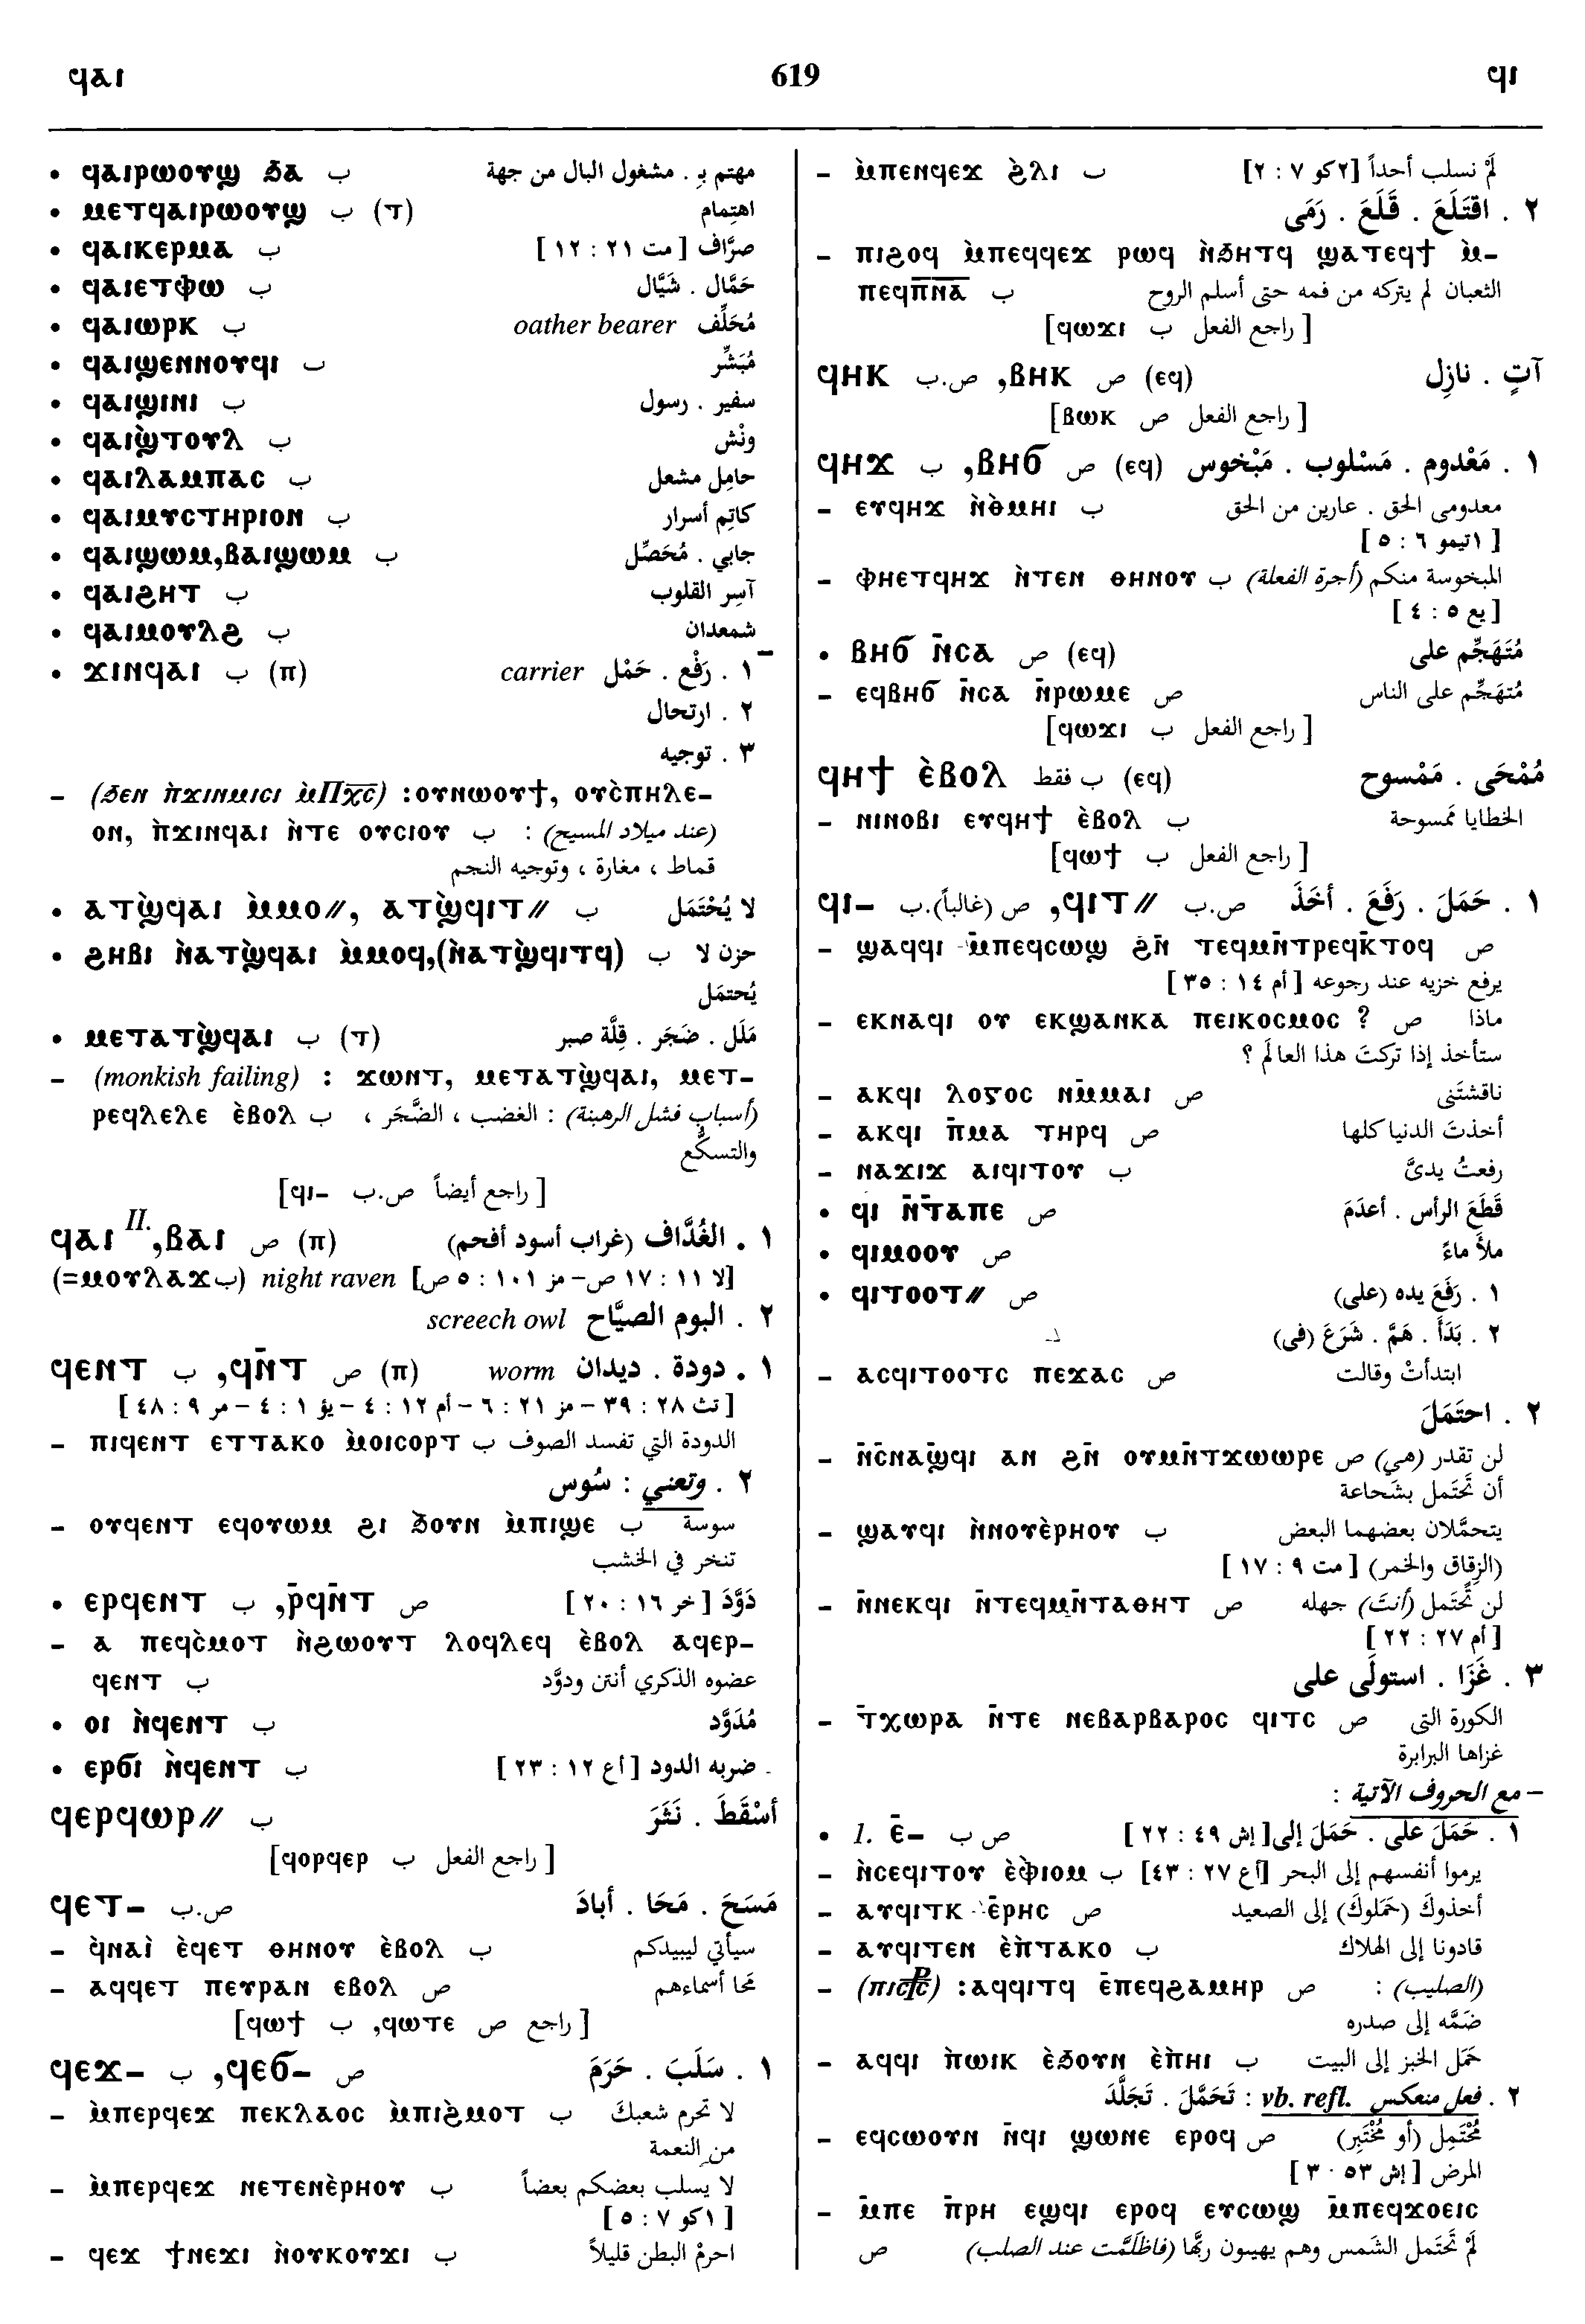 ϥⲁⲓ 619 ϥⲓ
• ϥⲁⲓⲣⲱⲟⲩϣ ϧⲁ ب مهتم بـِ . مشغول البال من جهة
• ⲙⲉⲧϥⲁⲓⲣⲱⲟⲩϣ ب (ⲧ) اهتِمام
• ϥⲁⲓⲕⲉⲣⲙⲁ ب صرَّاف [مت ٢١ : ١٢]
• ϥⲁⲓⲉⲧⲫⲱ ب حَمَّال . شَيَّال
• ϥⲁⲓⲱⲣⲕ ب oather bearer مُحَلِّف
• ϥⲁⲓϣⲉⲛⲛⲟⲩϥⲓ ب مُبَشِّر
• ϥⲁⲓϣⲓⲛⲓ ب سفير . رسول
• ϥⲁⲓϣ̀ⲧⲟⲩⲗ ب ونْش
• ϥⲁⲓⲗⲁⲙⲡⲁⲥ ب حامِل مشعل
• ϥⲁⲓⲙⲩⲥⲧⲏⲣⲓⲟⲛ ب كاتِم أسرار
• ϥⲁⲓϣⲱⲙ,ⲃⲁⲓϣⲱⲙ ب جابي . مُحَصِّل
• ϥⲁⲓϩⲏⲧ ب آسِر القلوب
• ϥⲁⲓⲙⲟⲩⲗϩ ب شمعدان
• ϫⲓⲛϥⲁⲓ ب (ⲡ) carrier ١ . رَفْع . حَمْل
٢ . ارتحال
٣ . توجيه
– (ϧⲉⲛ ⲡ̀ϫⲓⲛⲙⲓⲥⲓ ⲙ̀Ⲡⲭ̅ⲥ̅) :ⲟⲩⲛⲱⲟⲩϯ, ⲟⲩⲥ̀ⲡⲏⲗⲉ-
ⲟⲛ, ⲡ̀ϫⲓⲛϥⲁⲓ ⲛ̀ⲧⲉ ⲟⲩⲥⲓⲟⲩ ب (عند ميلاد المسيح) :
قماط ، مغارة ، وتوجيه النجم
• ⲁⲧϣ̀ϥⲁⲓ ⲙ̀ⲙⲟ//, ⲁⲧϣ̀ϥⲓⲧ// ب لا يُحْتَمَل
• ϩⲏⲃⲓ ⲛ̀ⲁⲧϣ̀ϥⲁⲓ ⲙ̀ⲙⲟϥ,(ⲛ̀ⲁⲧϣ̀ϥⲓⲧϥ) ب حزن لا
يُحتمَل
• ⲙⲉⲧⲁⲧϣ̀ϥⲁⲓ ب (ⲧ) مَلَل . ضَجَر . قِلَّة صبر
– (monkish failing) : ϫⲱⲛⲧ, ⲙⲉⲧⲁⲧϣ̀ϥⲁⲓ, ⲙⲉⲧ-
ⲣⲉϥⲗⲉⲗⲉ ⲉ̀ⲃⲟⲗ ب (أسباب فشل الرهبنة) : الغضب ، الضَّجَر ،
والتسكُّع
[راجع أيضاً ص.ب ϥⲓ-]
ϥⲁⲓ II. ,ⲃⲁⲓ ص (ⲡ) ١ . الغُدَّاف (غراب أسود أفحم)
(=ⲙⲟⲩⲗⲁϫب) night raven [لا ١١ : ١٧ ص– مز ١٠١ : ٥ ص]
٢ . البوم الصيَّاح screech owl
ϥⲉⲛⲧ ب ,ϥⲛ̄ⲧ ص (ⲡ) worm ١ . دودة . ديدان
[تث ٢٨ : ٣٩ – مز ٢١ : ٦ – أم ١٢ : ٤ – يؤ ١ : ٤ – مر ٩ : ٤٨]
– ⲡⲓϥⲉⲛⲧ ⲉⲧⲧⲁⲕⲟ ⲙ̀ⲟⲓⲥⲟⲣⲧ ب الدودة التي تفسد الصوف
٢ . وتعني : سُوس
– ⲟⲩϥⲉⲛⲧ ⲉϥⲟⲩⲱⲙ ϩⲓ ϧⲟⲩⲛ ⲙ̀ⲡⲓϣⲉ ب سوسة
تنخر في الخشب
• ⲉⲣϥⲉⲛⲧ ب ,ⲣ̄ϥⲛ̄ⲧ ص دَوَّدَ [خر ١٦ : ٢٠]
– ⲁ ⲡⲉϥⲥ̀ⲙⲟⲧ ⲛ̀ϩⲱⲟⲩⲧ ⲗⲟϥⲗⲉϥ ⲉ̀ⲃⲟⲗ ⲁϥⲉⲣ-
ϥⲉⲛⲧ ب عضوه الذكري أنتن ودوَّد
• ⲟⲓ ⲛ̀ϥⲉⲛⲧ ب مُدَوَّد
• ⲉⲣϭⲓ ⲛ̀ϥⲉⲛⲧ ب ضربه الدود [أع ١٢ : ٢٣]
ϥⲉⲣϥⲱⲣ// ب أسْقَطَ . نَثَرَ
[راجع الفعل ب ϥⲟⲣϥⲉⲣ]
ϥⲉⲧ- ص.ب مَسَحَ . مَحَا . أبادَ
– ϥ̀ⲛⲁⲓ̀ ⲉ̀ϥⲉⲧ ⲑⲏⲛⲟⲩ ⲉ̀ⲃⲟⲗ ب سيأتي ليبيدكم
– ⲁϥϥⲉⲧ ⲡⲉⲩⲣⲁⲛ ⲉⲃⲟⲗ ص محا أسماءهم
[راجع ص ϥⲱⲧⲉ, ب ϥⲱϯ]
ϥⲉϫ- ب ,ϥⲉϭ- ص ١ . سَلَبَ . حَرَمَ
– ⲙ̀ⲡⲉⲣϥⲉϫ ⲡⲉⲕⲗⲁⲟⲥ ⲙ̀ⲡⲓϩ̀ⲙⲟⲧ ب لا تحرم شعبك
من النعمة
– ⲙ̀ⲡⲉⲣϥⲉϫ ⲛⲉⲧⲉⲛⲉ̀ⲣⲏⲟⲩ ب لا يسلب بعضكم بعضاً
[١كو ٧ : ٥]
– ϥⲉϫ ϯⲛⲉϫⲓ ⲛ̀ⲟⲩⲕⲟⲩϫⲓ ب احرمْ البطن قليلاً
– ⲙ̀ⲡⲉⲛϥⲉϫ ϩ̀ⲗⲓ ب لَمْ نسلب أحداً [٢كو ٧ : ٢]
٢ . اقتَلَعَ . قَلَعَ . رَمَى
– ⲡⲓϩⲟϥ ⲙ̀ⲡⲉϥϥⲉϫ ⲣⲱϥ ⲛ̀ϧⲏⲧϥ ϣⲁⲧⲉϥϯ ⲙ̀-
ⲡⲉϥⲡ̅ⲛ̅ⲁ̅ ب الثعبان لم يتركه من فمه حتى أسلم الروح
[راجع الفعل ب ϥⲱϫⲓ]
ϥⲏⲕ ص.ب ,ⲃⲏⲕ ص (ⲉϥ) آتٍ . نازِل
[راجع الفعل ص ⲃⲱⲕ]
ϥⲏϫ ب ,ⲃⲏϭ ص (ⲉϥ) ١ . مَعْدوم . مَسْلوب . مَبْخوس
– ⲉⲩϥⲏϫ ⲛ̀ⲑⲙⲏⲓ ب معدومي الحق . عارين من الحق
[١تيمو ٦ : ٥]
– ⲫⲏⲉⲧϥⲏϫ ⲛ̀ⲧⲉⲛ ⲑⲏⲛⲟⲩ ب المبخوسة منكم (أجرة الفعلة)
[يع ٥ : ٤]
• ⲃⲏϭ ⲛ̄ⲥⲁ ص (ⲉϥ) مُتَهَجِّم على
– ⲉϥⲃⲏϭ ⲛ̄ⲥⲁ ⲛ̄ⲣⲱⲙⲉ ص مُتهَجِّم على الناس
[راجع الفعل ب ϥⲱϫⲓ]
ϥⲏϯ ⲉ̀ⲃⲟⲗ ب فقط (ⲉϥ) مُمْحَى . مَمْسوح
– ⲛⲓⲛⲟⲃⲓ ⲉⲩϥⲏϯ ⲉ̀ⲃⲟⲗ ب الخطايا مَمسوحة
[راجع الفعل ب ϥⲱϯ]
ϥⲓ- ص (غالباً).ب ,ϥⲓⲧ// ص.ب ١ . حَمَلَ . رَفَعَ . أخَذَ
– ϣⲁϥϥⲓ ⲙ̄ⲡⲉϥⲥⲱϣ ϩⲛ̄ ⲧⲉϥⲙⲛ̄ⲧⲣⲉϥⲕ̄ⲧⲟϥ ص
يرفع خزيه عند رجوعه [أم ١٤ : ٣٥]
– ⲉⲕⲛⲁϥⲓ ⲟⲩ ⲉⲕϣⲁⲛⲕⲁ ⲡⲉⲓⲕⲟⲥⲙⲟⲥ ? ص ماذا
ستأخذ إذا تركتَ هذا العالَم ؟
– ⲁⲕϥⲓ ⲗⲟⲅⲟⲥ ⲛⲙ̄ⲙⲁⲓ ص ناقشتَنى
– ⲁⲕϥⲓ ⲡ̄ⲙⲁ ⲧⲏⲣϥ ص أخذتَ الدنيا كلها
– ⲛⲁϫⲓϫ ⲁⲓϥⲓⲧⲟⲩ ب رفعتُ يدىَّ
• ϥⲓ ⲛ̄ⲧ̄ⲁⲡⲉ ص قَطَعَ الرأس . أعدَمَ
• ϥⲓⲙⲟⲟⲩ ص ملأَ ماءً
• ϥⲓⲧⲟⲟⲧ// ص ١ . رَفَعَ يده (على)
٢ . بَدَأَ . هَمَّ . شَرَعَ (فى)
– ⲁⲥϥⲓⲧⲟⲟⲧⲥ ⲡⲉϫⲁⲥ ص ابتدأتْ وقالت
٢ . احتَمَلَ
– ⲛ̄ⲥ̄ⲛⲁϣ̄ϥⲓ ⲁⲛ ϩⲛ̄ ⲟⲩⲙⲛ̄ⲧϫⲱⲱⲣⲉ ص لن تقدر (هي)
أن تَحتَمل بشجاعة
– ϣⲁⲩϥⲓ ⲛ̀ⲛⲟⲩⲉ̀ⲣⲏⲟⲩ ب يتحمَّلان بعضهما البعض
(الزقاق والخمر) [مت ٩ : ١٧]
– ⲛ̄ⲛⲉⲕϥⲓ ⲛ̄ⲧⲉϥⲙⲛ̄ⲧⲁⲑⲏⲧ ص لن تَحتمل (أنتَ) جهله
[أم ٢٧ : ٢٢]
٣ . غَزَا . استولَى على
– ⲧ̄ⲭⲱⲣⲁ ⲛ̄ⲧⲉ ⲛⲉⲃⲁⲣⲃⲁⲣⲟⲥ ϥⲓⲧⲥ ص الكورة التى
غزاها البرابرة
– مع الحروف الآتية :
• 1. ⲉ̄- ص ب ١ . حَمَلَ على . حَمَلَ إلى [إش ٤٩ : ٢٢]
– ⲛ̀ⲥⲉϥⲓⲧⲟⲩ ⲉ̀ⲫⲓⲟⲙ ب يرموا أنفسهم إلى البحر [أع ٢٧ : ٤٣]
– ⲁⲩϥⲓⲧⲕ ⲉ̄ⲣⲏⲥ ص أخذوكَ (حَملوكَ) إلى الصعيد
– ⲁⲩϥⲓⲧⲉⲛ ⲉ̀ⲡ̀ⲧⲁⲕⲟ ب قادونا إلى الهلاك
– (ⲡⲓⲥ⳨ⲥ) :ⲁϥϥⲓⲧϥ ⲉ̄ⲡⲉϥϩⲁⲙⲏⲣ ص (الصليب) :
ضَمَّه إلى صدره
– ⲁϥϥⲓ ⲡ̀ⲱⲓⲕ ⲉ̀ϧⲟⲩⲛ ⲉ̀ⲡ̀ⲏⲓ ب حَمَل الخبز إلى البيت
٢ . فعل منعكس vb. refl. : تَحَمَّلَ . تَجَلَّدَ
– ⲉϥⲥⲱⲟⲩⲛ ⲛ̄ϥⲓ ϣⲱⲛⲉ ⲉⲣⲟϥ ص مُحْتَمِل (أو مُخْتَبِر)
المرض [إش ٥٣ . ٣]
– ⲙ̄ⲡⲉ ⲡ̄ⲣⲏ ⲉϣϥⲓ ⲉⲣⲟϥ ⲉⲩⲥⲱϣ ⲙ̄ⲡⲉϥϫⲟⲉⲓⲥ
لَمْ تَحتمل الشمس وهم يهينون ربَّها (فاظلَمَّت عند الصلب) ص